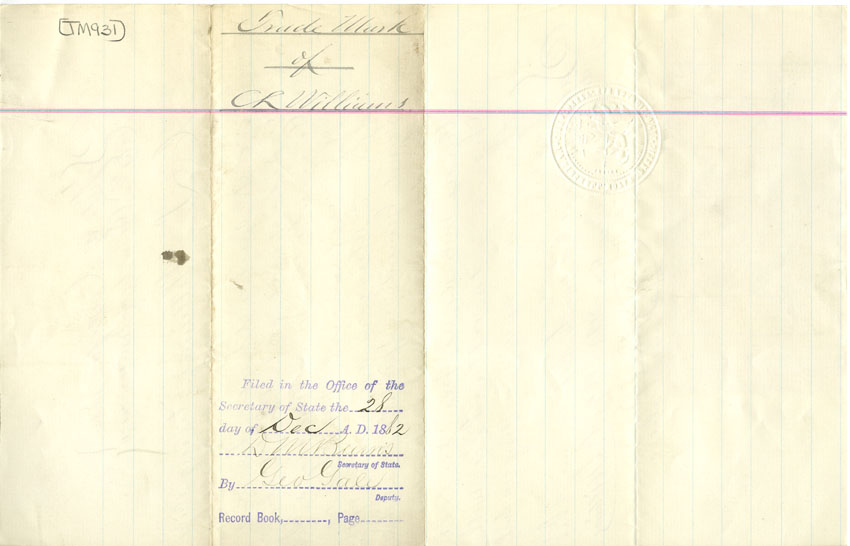 [TM931]
Trade Mark
of
CL Williams
Filed in the Office of the
Secretary of State the 28
day of Dec A. D. 1882
Secretary of State.
By Geo
Deputy.
Record Book, Page